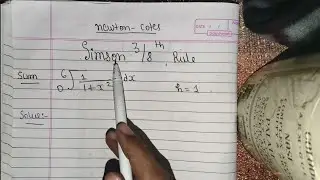 newton-cotes
Simson 3/8 Rule
Sum 6 0 ∫ 1/1+x² dx h = 1
Solve: